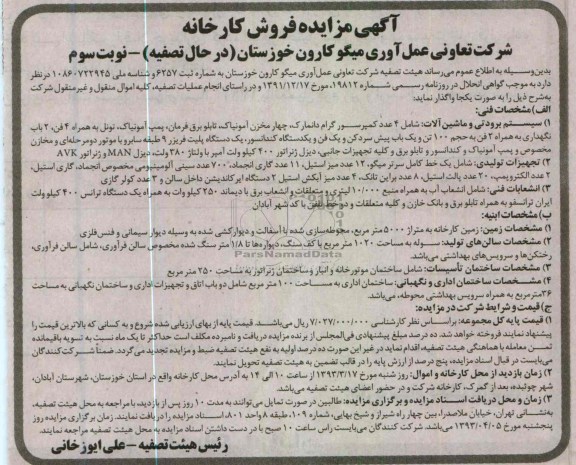 آگهی مزایده فروش کارخانه
شرکت تعاونی عمل آوری میگو کارون خوزستان (در حال تصفیه) – نوبت سوم
بدین‌وسیله به اطلاع عموم می‌رساند هیئت تصفیه شرکت تعاونی عمل‌آوری میگو کارون خوزستان به شماره ثبت ۶۲۵۷ و شناسه ملی ۱۰۸۶۰۷۲۲۹۴۵ در نظر
دارد به موجب گواهی انحلال در روزنامه رسمی شماره ۱۹۸۱۲ مورخ ۱۳۹۱/۱۲/۱۷ و در راستای انجام عملیات تصفیه، کلیه اموال منقول و غیرمنقول شرکت
به‌شرح ذیل را به صورت یکجا واگذار نماید:
الف) مشخصات فنی:
۱) سیستم برودتی و ماشین آلات: شامل ۴ عدد کمپرسور گرام دانمارک، چهار مخزن آمونیاک، تابلو برق فرمان، پمپ آمونیاک، تونل به همراه ۴ فن، ۲ باب
نگهداری به همراه ۲ فن به حجم ۱۰۰ تن و یک باب پیش سردکن و یک فن و یکدستگاه کندانسور، یک دستگاه پلیت فریزر ۹ طبقه سابرو با موتور دومرحله‌ای و مخازن
مخصوص و پمپ آمونیاک و کندانسور و تابلو برق و کلیه تجهیزات جانبی، دیزل ژنراتور ۴۰۰ کیلو ولت آمپر با ولتاژ ۳۸۰ ولت، دیزل MAN و ژنراتور AVK
۲) تجهیزات تولیدی: شامل یک خط کامل سرتر میگو، ۱۲ عدد میز استیل، ۱۱ عدد گاری انجماد، ۷۰۰ عدد سینی آلومینیومی مخصوص انجماد، گاری استیل،
۲ عدد الکتروپمپ، ۲۰ عدد پالت استیل، ۸ عدد براین تانک، ۴ عدد میز آیکش استیل ۲ دستگاه ایرکاندیشن داخل سالن و ۳ عدد کولر گازی
۳) انشعابات فنی: شامل انشعاب آب به همراه منبع ۱۰/۰۰۰ لیتری و متعلقات و انشعاب برق با دیماند ۲۵۰ کیلو وات به همراه یک دستگاه ترانس ۴۰۰ کیلو ولت
ایران ترانسفو به همراه تابلو برق و بانک خازن و کلیه متعلقات و دو خط تلفن با کد شهر آبادان
ب) مشخصات ابنیه:
۱) مشخصات زمین: زمین کارخانه به متراژ ۵۰۰۰ متر مربع، محوطه‌سازی شده با آسفالت و دیوارکشی شده به وسیله دیوار سیمانی و فنس فلزی
۲) مشخصات سالن‌های تولید: سوله به مساحت ۱۰۲۰ متر مربع با کف سنگ، دیواره‌ها تا ۱/۸ متر سنگ شده مخصوص سالن فرآوری، شامل سالن فرآوری،
رختکن‌ها و سرویس‌های بهداشتی می‌باشد.
۳) مشخصات ساختمان تأسیسات: شامل ساختمان موتورخانه و انبار و ساختمان ژنراتور به مساحت ۲۵۰ متر مربع
۴) مشخصات ساختمان اداری و نگهبانی: ساختمان اداری به مساحت ۱۰۰ متر مربع شامل دو باب اتاق و تجهیزات اداری و ساختمان نگهبانی به مساحت
۳۶ مترمربع به همراه سرویس بهداشتی محوطه، می‌باشد.
ج) قیمت و شرایط شرکت در مزایده:
۱) قیمت پایه کل مجموعه: براساس نظر کارشناسی ۷/۰۲۷/۰۰۰/۰۰۰ ریال می‌باشد. قیمت پایه از بهای ارزیابی شده شروع و به کسانی که بالاترین قیمت را
پیشنهاد نمایند فروخته خواهد شد. ده درصد مبلغ پیشنهادی فی‌المجلس از برنده مزایده دریافت و نامبرده مکلف است حداکثر تا یک ماه نسبت به تسویه باقیمانده
ثمن معامله با هماهنگی هیئت تصفیه، اقدام نماید در غیر این صورت ده درصد اولیه به نفع هیئت تصفیه ضبط و مزایده تجدید می‌گردد. ضمناً شرکت‌کنندگان
می‌بایست در قبال اسناد مزایده، پنج درصد از ارزش پایه را در قالب تضمین به هیئت تصفیه تحویل نمایند.
۲) زمان بازدید از محل کارخانه و اموال: روز شنبه مورخ ۱۳۹۳/۳/۱۷ از ساعت ۱۰ الی ۱۴ به آدرس محل کارخانه واقع در استان خوزستان، شهرستان آبادان،
شهر چوئبده، بعد از گمرک، کارخانه شرکت و در حضور اعضای هیئت تصفیه می‌باشد.
۳) زمان و محل دریافت اسناد مزایده و برگزاری مزایده: طالبین در صورت تمایل می‌توانند به مدت ۱۰ روز پس از بازدید، با مراجعه به محل هیئت تصفیه،
به‌نشانی تهران، خیابان ملاصدرا، بین چهار راه شیراز و شیخ بهایی، شماره ۱۰۹، طبقه ۸ واحد ۸۰۱، اسناد مزایده را دریافت نمایند. زمان برگزاری مزایده روز
پنجشنبه مورخ ۱۳۹۳/۰۴/۰۵ می‌باشد. شرکت کنندگان می‌بایست راس ساعت ۱۰ صبح با در دست داشتن اسناد مزایده به محل هیئت تصفیه مراجعه نمایند.
رئیس هیئت تصفیه – علی ایوزخانی
ParsNamadData